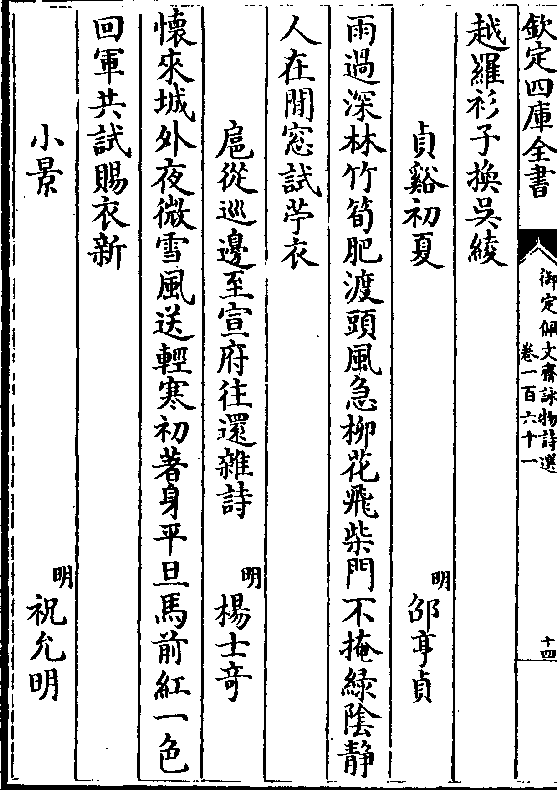 欽定四庫全書
御定佩文齋詠物詩選
卷一百六十一
十四
越羅衫子換吳綾
貞谿初夏
明
邵亨貞
雨過深林竹筍肥渡頭風急柳花飛柴門不掩綠陰静
人在閒窓試苧衣
扈從巡邊至宣府往還雜詩
明
楊士竒
懷來城外夜微雪風送輕寒初著身平旦馬前紅一色
回軍共試賜衣新
小景
明
祝允明